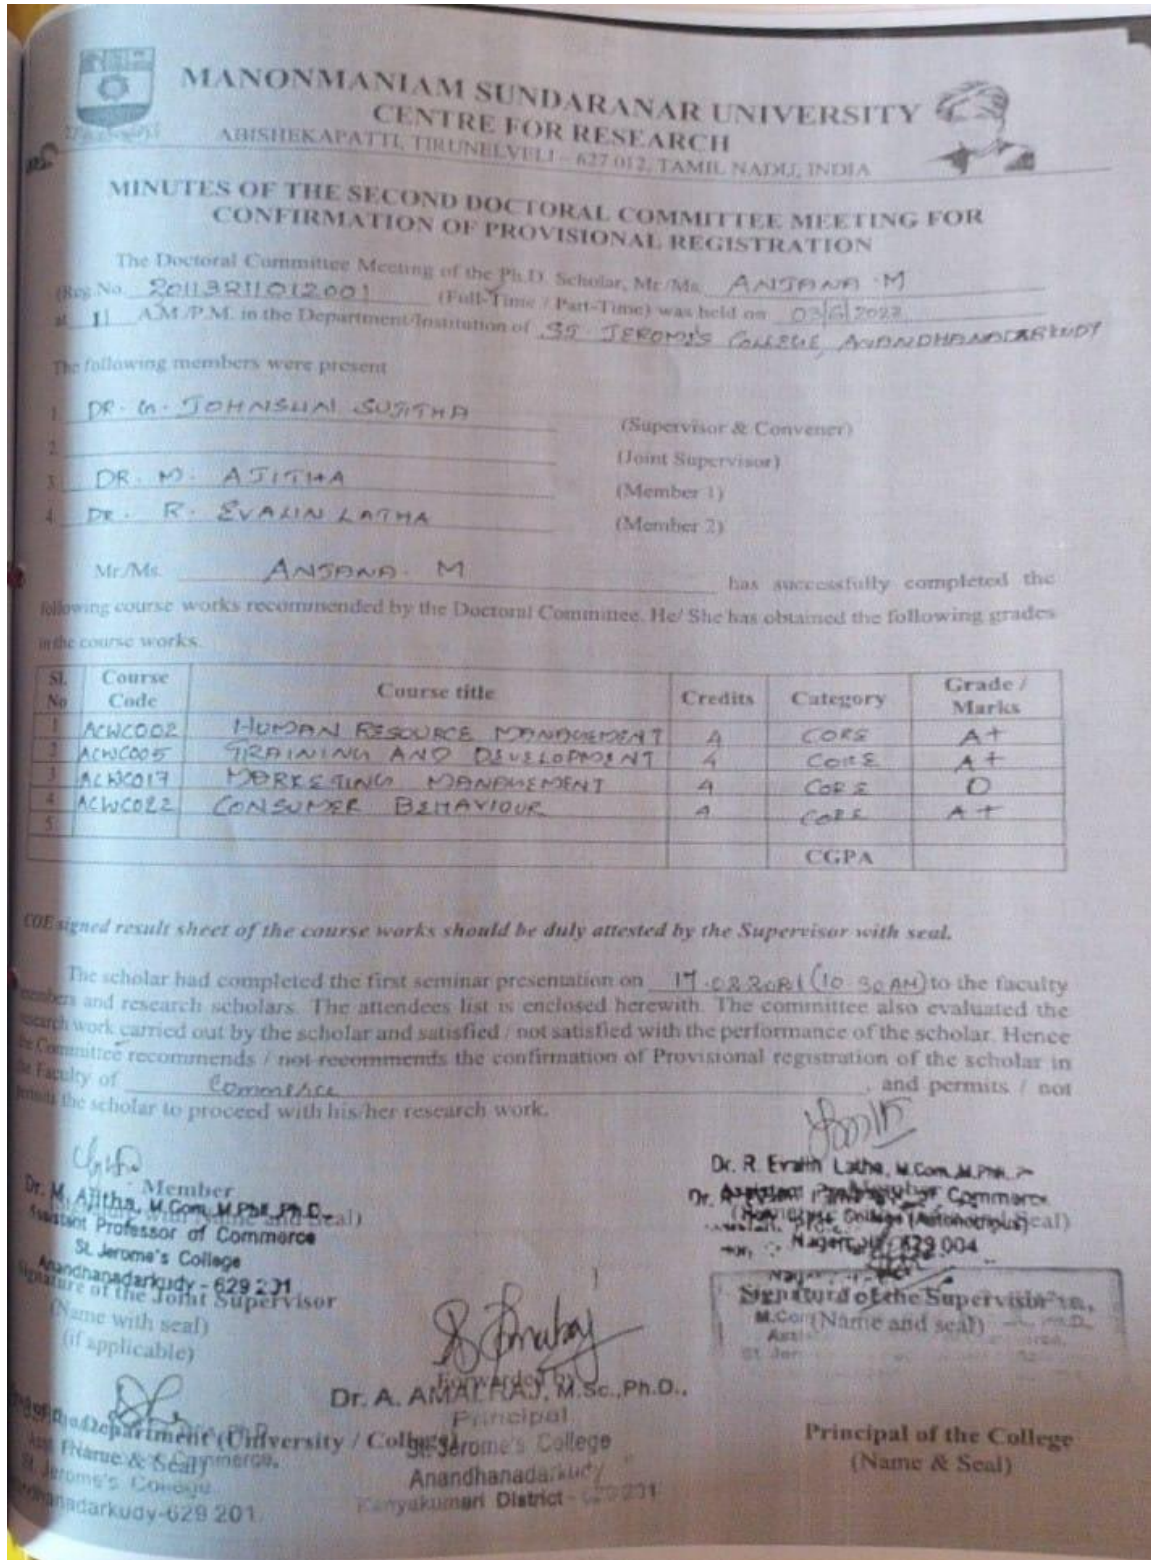 MANONMANIAM SUNDARANAR UNIVERSITY
CENTRE FOR RESEARCH
ABISHEKAPATTI, TIRUNELVELI – 627 012, TAMIL NADU, INDIA
MINUTES OF THE SECOND DOCTORAL COMMITTEE MEETING FOR
CONFIRMATION OF PROVISIONAL REGISTRATION
The Doctoral Committee Meeting of the Ph.D. Scholar, Mr./Ms. ANJANA. M
(Reg.No. 20113211012001 (Full-Time / Part-Time) was held on
at 11 A.M./P.M. in the Department/Institution of JEROME'S COLLEGE, ANANDHANADARKUDY
The following members were present
1. DR. G. JOHNSLIN SUJITHA (Supervisor & Convener)
2. (Joint Supervisor)
3. DR. M. AJITHA (Member 1)
4. DR. R. EVALIN LATHA (Member 2)
Mr./Ms. ANJANA. M has successfully completed the
following course works recommended by the Doctoral Committee. He/ She has obtained the following grades
in the course works.
Sl. No Course Code Course title Credits Category Grade / Marks
1 ACWC002 HUMAN RESOURCE MANAGEMENT 4 CORE A+
2 ACWC005 TRAINING AND DEVELOPMENT 4 CORE A+
3 ACWC017 MARKETING MANAGEMENT 4 CORE O
4 ACWC022 CONSUMER BEHAVIOUR 4 CORE A+
5
CGPA
COE signed result sheet of the course works should be duly attested by the Supervisor with seal.
The scholar had completed the first seminar presentation on (10 30 AM) to the faculty
members and research scholars. The attendees list is enclosed herewith. The committee also evaluated the
research work carried out by the scholar and satisfied / not satisfied with the performance of the scholar. Hence
the Committee recommends / not recommends the confirmation of Provisional registration of the scholar in
the Faculty of Commerce, and permits / not
permits the scholar to proceed with his/her research work.
Dr. R. Evalin Latha, M.Com, M.Phil,
Member
Dr. M. Ajitha, M.Com, M.Phil, Ph.D.,
Assistant Professor of Commerce
St. Jerome's College
Anandhanadarkudy - 629 201
Commerce
College (Autonomous)
629 004
Signature of the Joint Supervisor
(Name with seal)
(if applicable)
Signature of the Supervisor
(Name and seal)
Forwarded by
Dr. A. AMALRAJ, M.Sc., Ph.D.,
Principal
St. Jerome's College
Anandhanadarkudy
Kanyakumari District - 629 201
Department (University / College)
(Name & Seal)
St. Jerome's College
Anandhanadarkudy-629 201.
Principal of the College
(Name & Seal)